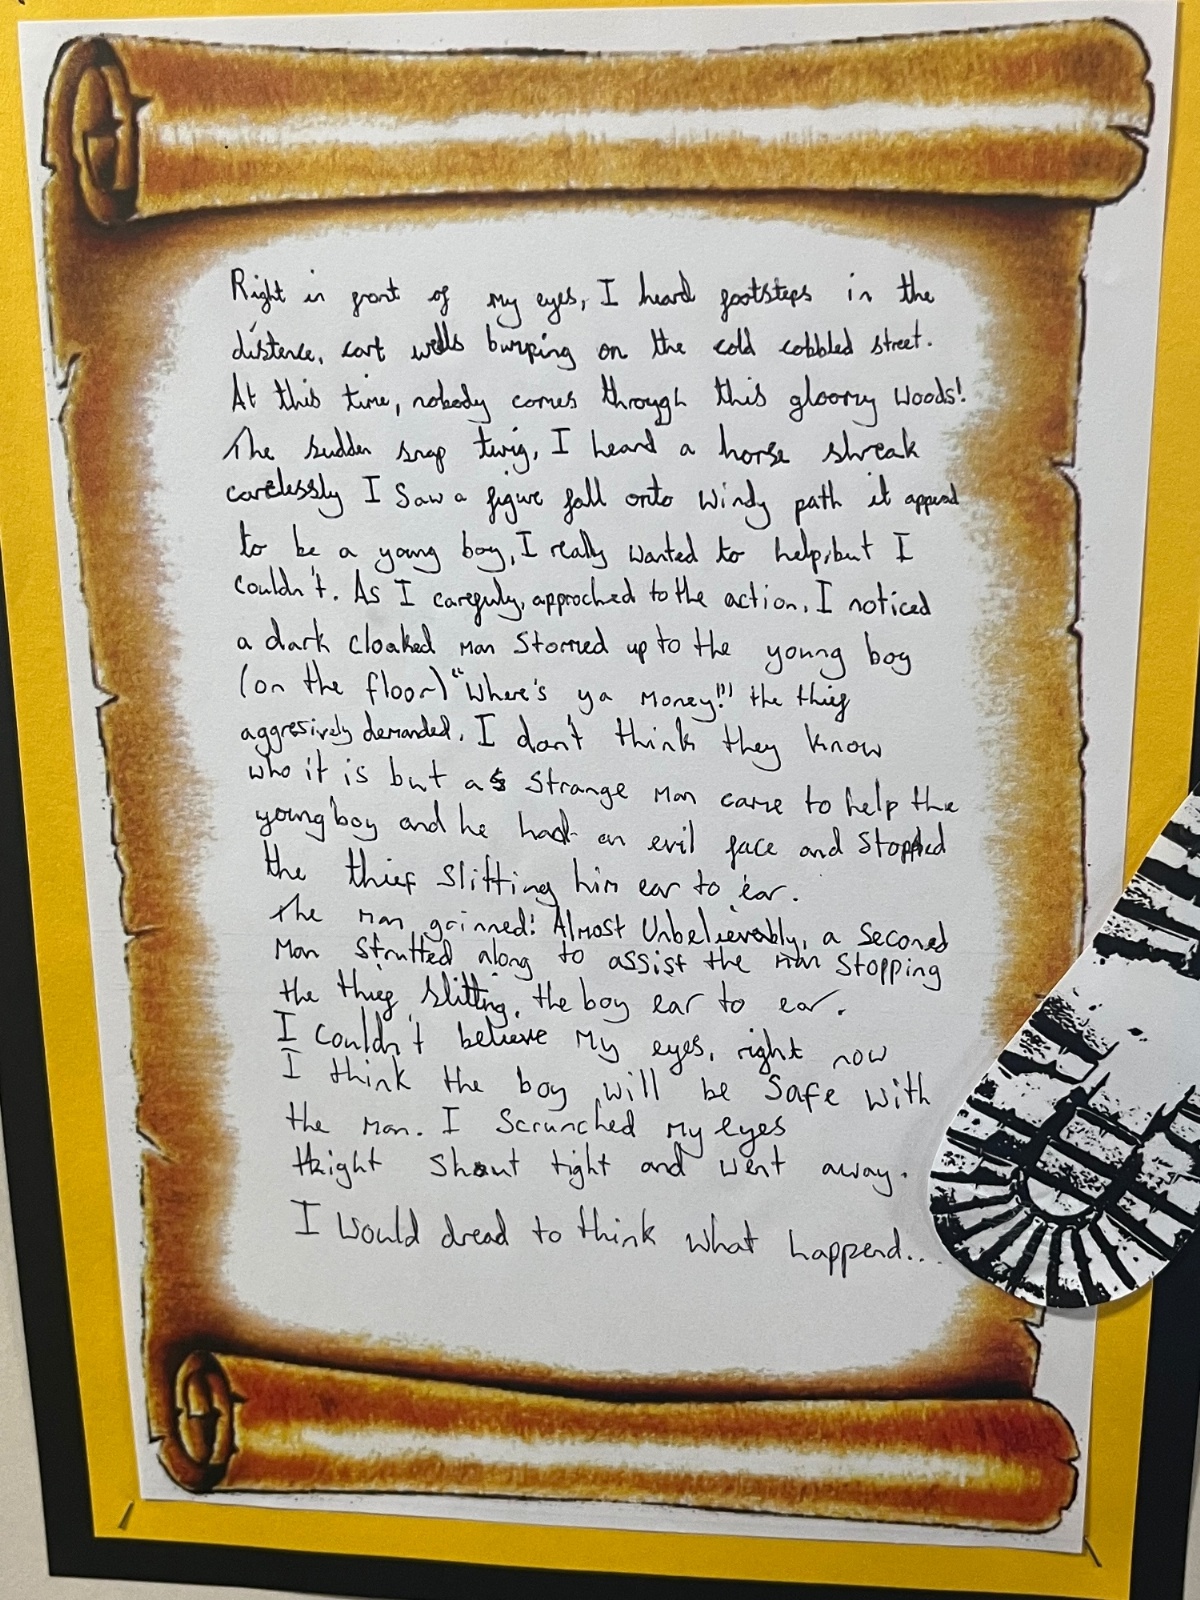 Right in front of my eyes, I heard footsteps in the
distence, cart wells bumping on the cold cobbled street.
At this time, nobody comes through this gloomy woods!
The sudden snap twig, I heard a horse shreak
carelessly I Saw a figure fall onto windy path it append
to be a young boy, I really wanted to help, but I
couldn't. As I carefuly, approched to the action, I noticed
a dark cloaked man Stormed up to the young boy
(on the floor) "Where's ya money!!" the thief
aggresively demanded, I don't think they know
who it is but a Strange man came to help the
young boy and he had an evil face and Stopped
the thief Slitting him ear to ear.
The man grinned! Almost Unbelievably, a Seconed
Man Strutted along to assist the man Stopping
the thief Slitting, the boy ear to ear.
I couldn't believe My eyes, right now
I think the boy will be Safe with
the man. I Scrunched My eyes
tight Shut tight and went away.
I Would dread to think what happend...